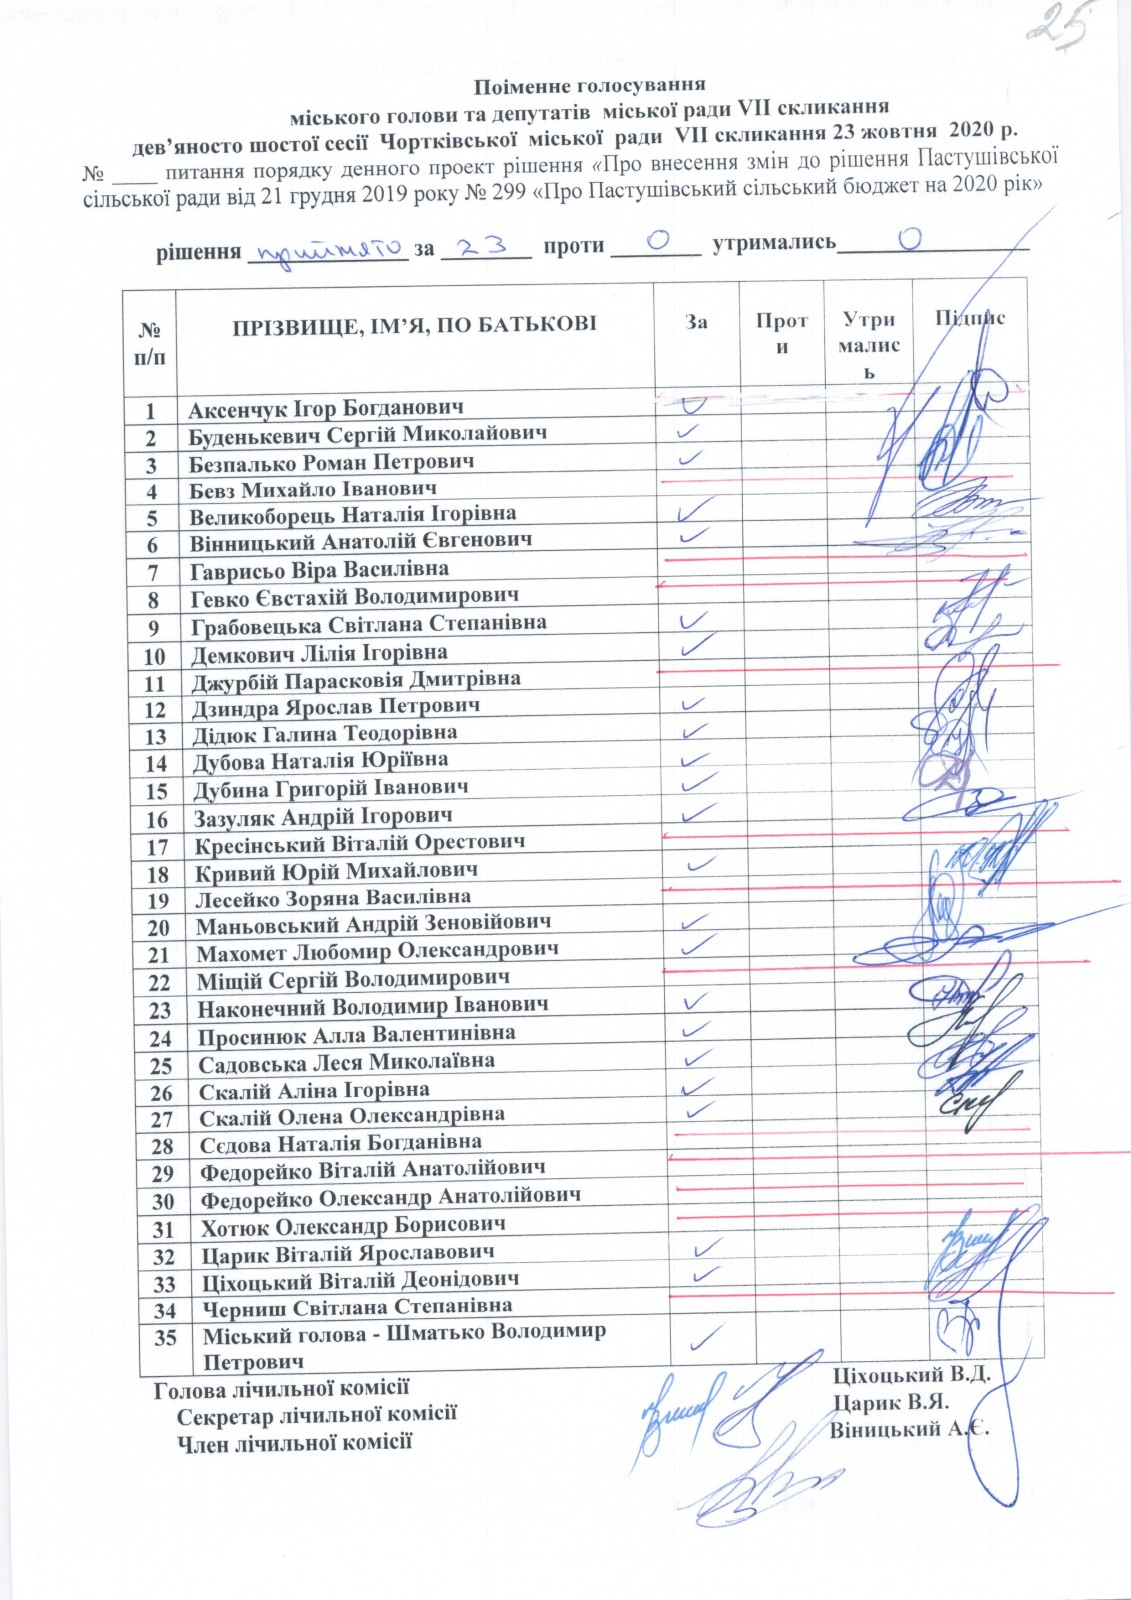 25
Поіменне голосування
міського голови та депутатів міської ради VII скликання
дев’яносто шостої сесії Чортківської міської ради VII скликання 23 жовтня 2020 р.
№ ____ питання порядку денного проект рішення «Про внесення змін до рішення Пастушівської
сільської ради від 21 грудня 2019 року № 299 «Про Пастушівський сільський бюджет на 2020 рік»
рішення прийнято за 23 проти 0 утримались 0
№ п/п ПРІЗВИЩЕ, ІМ’Я, ПО БАТЬКОВІ За Проти Утримались Підпис
1 Аксенчук Ігор Богданович ✓
2 Буденькевич Сергій Миколайович ✓
3 Безпалько Роман Петрович ✓
4 Бевз Михайло Іванович
5 Великоборець Наталія Ігорівна ✓
6 Вінницький Анатолій Євгенович ✓
7 Гаврисьо Віра Василівна
8 Гевко Євстахій Володимирович
9 Грабовецька Світлана Степанівна ✓
10 Демкович Лілія Ігорівна ✓
11 Джурбій Парасковія Дмитрівна
12 Дзиндра Ярослав Петрович ✓
13 Дідюк Галина Теодорівна ✓
14 Дубова Наталія Юріївна ✓
15 Дубина Григорій Іванович ✓
16 Зазуляк Андрій Ігорович ✓
17 Кресінський Віталій Орестович
18 Кривий Юрій Михайлович ✓
19 Лесейко Зоряна Василівна
20 Маньовський Андрій Зеновійович ✓
21 Махомет Любомир Олександрович ✓
22 Міщій Сергій Володимирович
23 Наконечний Володимир Іванович ✓
24 Просинюк Алла Валентинівна ✓
25 Садовська Леся Миколаївна ✓
26 Скалій Аліна Ігорівна ✓
27 Скалій Олена Олександрівна ✓
28 Сєдова Наталія Богданівна
29 Федорейко Віталій Анатолійович
30 Федорейко Олександр Анатолійович
31 Хотюк Олександр Борисович
32 Царик Віталій Ярославович ✓
33 Ціхоцький Віталій Деонідович ✓
34 Черниш Світлана Степанівна
35 Міський голова - Шматько Володимир ✓
Петрович
Голова лічильної комісії Ціхоцький В.Д.
Секретар лічильної комісії Царик В.Я.
Член лічильної комісії Віницький А.Є.